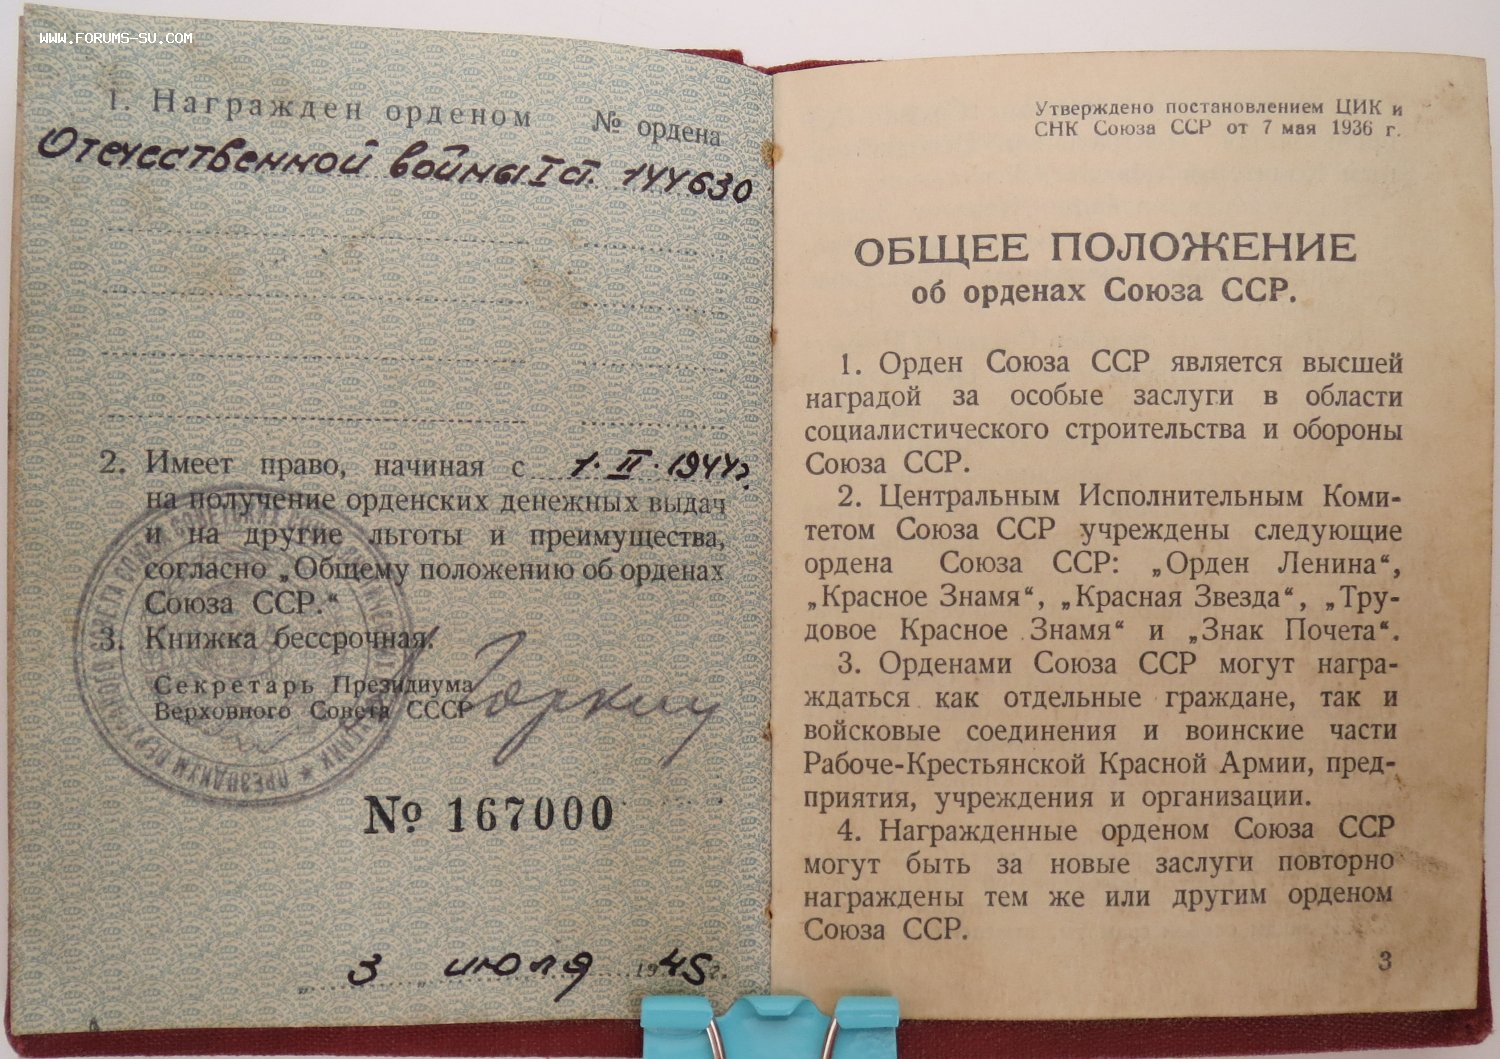 WWW.FORUMS-SU.COM
1. Награжден орденом № ордена
Отечественной войны I ст. 144630
2. Имеет право, начиная с 1·II·1944г.
на получение орденских денежных выдач
и на другие льготы и преимущества,
согласно „Общему положению об орденах
Союза ССР.“
3. Книжка бессрочная.
Секретарь Президиума
Верховного Совета СССР
Горкин
№ 167000
„3„ июля 1945г.
Утверждено постановлением ЦИК и
СНК Союза ССР от 7 мая 1936 г.
ОБЩЕЕ ПОЛОЖЕНИЕ
об орденах Союза ССР.
1. Орден Союза ССР является высшей
наградой за особые заслуги в области
социалистического строительства и обороны
Союза ССР.
2. Центральным Исполнительным Коми-
тетом Союза ССР учреждены следующие
ордена Союза ССР: „Орден Ленина“,
„Красное Знамя“, „Красная Звезда“, „Тру-
довое Красное Знамя“ и „Знак Почета“.
3. Орденами Союза ССР могут награ-
ждаться как отдельные граждане, так и
войсковые соединения и воинские части
Рабоче-Крестьянской Красной Армии, пред-
приятия, учреждения и организации.
4. Награжденные орденом Союза ССР
могут быть за новые заслуги повторно
награждены тем же или другим орденом
Союза ССР.
3